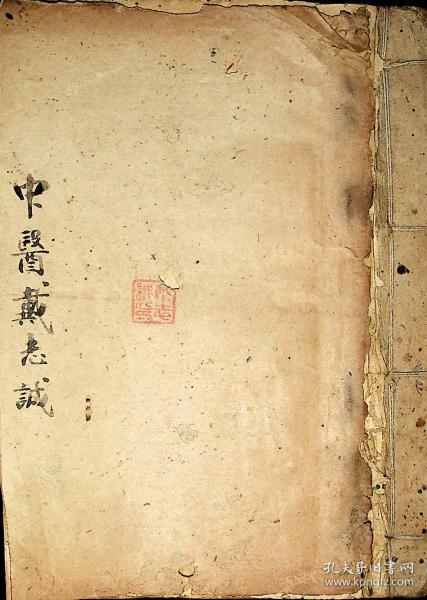 中醫戴志誠
孔夫子旧书网
www.kongfz.com